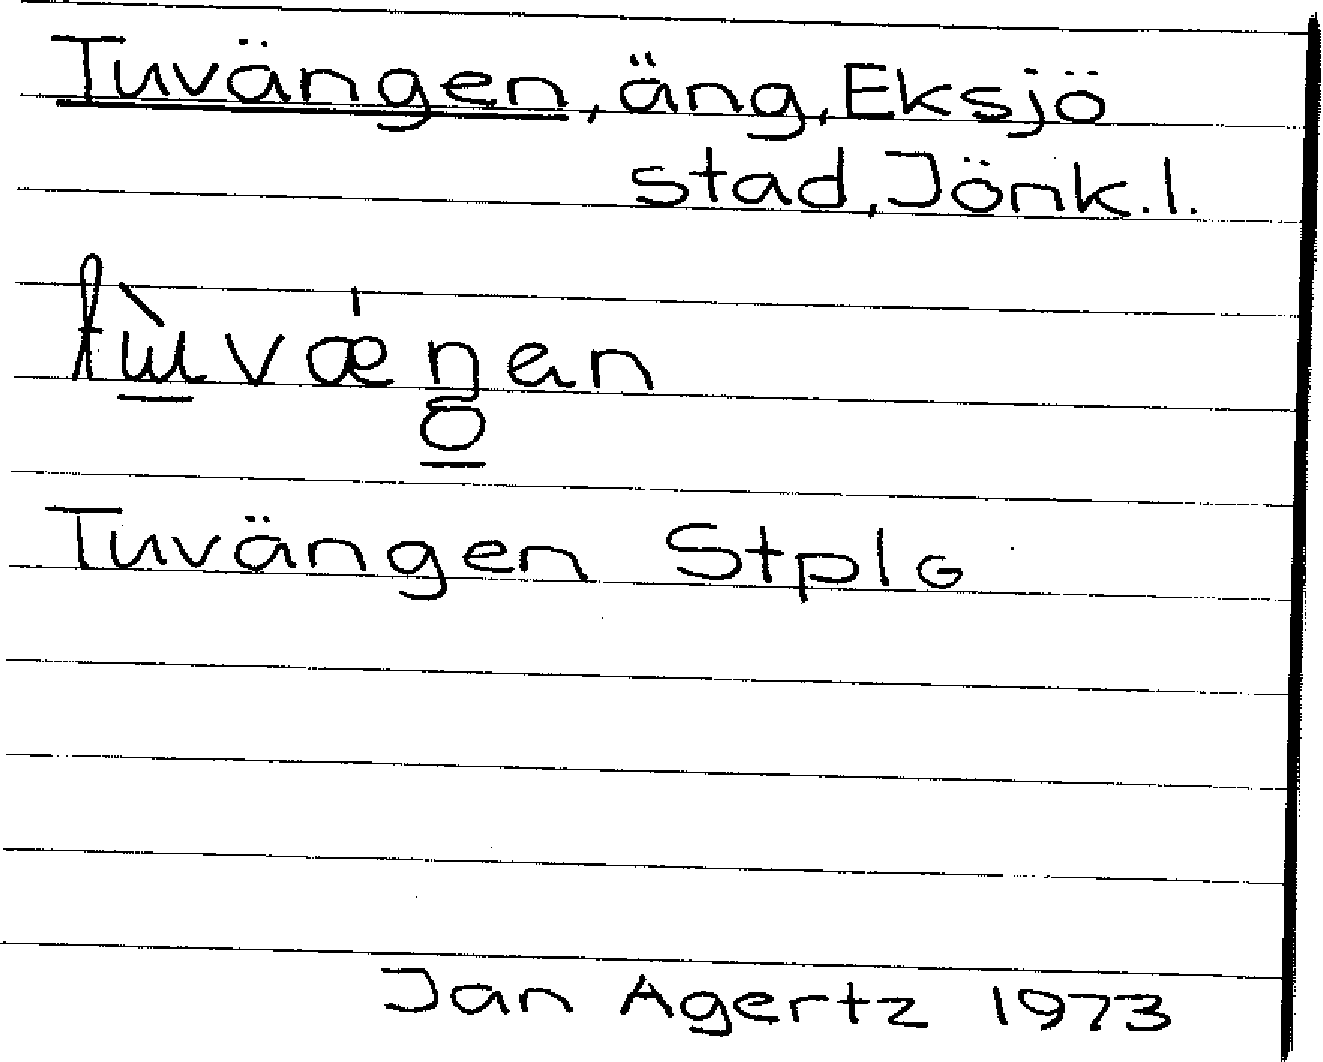 Tuvängen, äng, Eksjö
stad, Jönk. l.
Tuvängen Stplo
Jan Agertz 1973